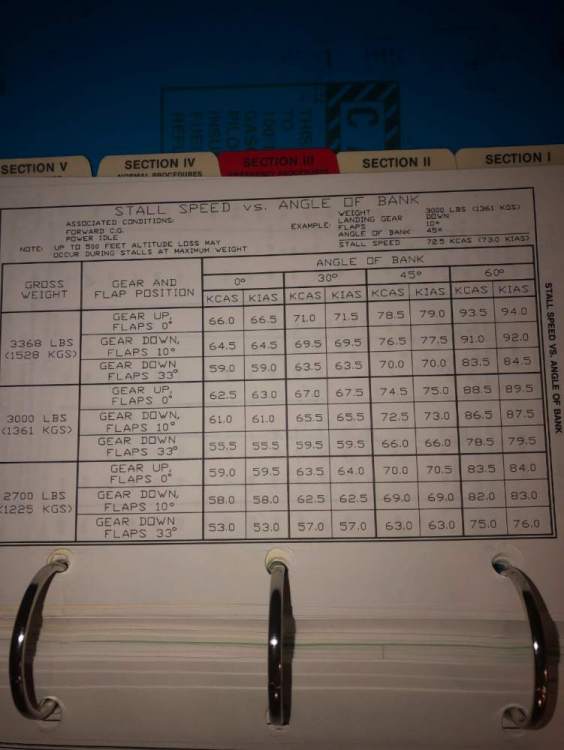 SECTION V
SECTION IV
SECTION III
SECTION II
SECTION I
NORMAL PROCEDURES
EMERGENCY PROCEDURES
STALL SPEED vs. ANGLE OF BANK
ASSOCIATED CONDITIONS:
FORWARD C.G.
POWER IDLE
NOTE: UP TO 500 FEET ALTITUDE LOSS MAY
OCCUR DURING STALLS AT MAXIMUM WEIGHT
WEIGHT 3000 LBS (1361 KGS)
LANDING GEAR DOWN
EXAMPLE: FLAPS 10°
ANGLE OF BANK 45°
STALL SPEED 72.5 KCAS (73.0 KIAS)
GROSS WEIGHT
GEAR AND FLAP POSITION
ANGLE OF BANK
0° 30° 45° 60°
KCAS KIAS KCAS KIAS KCAS KIAS KCAS KIAS
3368 LBS
(1528 KGS)
GEAR UP, FLAPS 0° 66.0 66.5 71.0 71.5 78.5 79.0 93.5 94.0
GEAR DOWN, FLAPS 10° 64.5 64.5 69.5 69.5 76.5 77.5 91.0 92.0
GEAR DOWN FLAPS 33° 59.0 59.0 63.5 63.5 70.0 70.0 83.5 84.5
3000 LBS
(1361 KGS)
GEAR UP, FLAPS 0° 62.5 63.0 67.0 67.5 74.5 75.0 88.5 89.5
GEAR DOWN, FLAPS 10° 61.0 61.0 65.5 65.5 72.5 73.0 86.5 87.5
GEAR DOWN FLAPS 33° 55.5 55.5 59.5 59.5 66.0 66.0 78.5 79.5
2700 LBS
(1225 KGS)
GEAR UP, FLAPS 0° 59.0 59.5 63.5 64.0 70.0 70.5 83.5 84.0
GEAR DOWN, FLAPS 10° 58.0 58.0 62.5 62.5 69.0 69.0 82.0 83.0
GEAR DOWN FLAPS 33° 53.0 53.0 57.0 57.0 63.0 63.0 75.0 76.0
STALL SPEED VS. ANGLE OF BANK